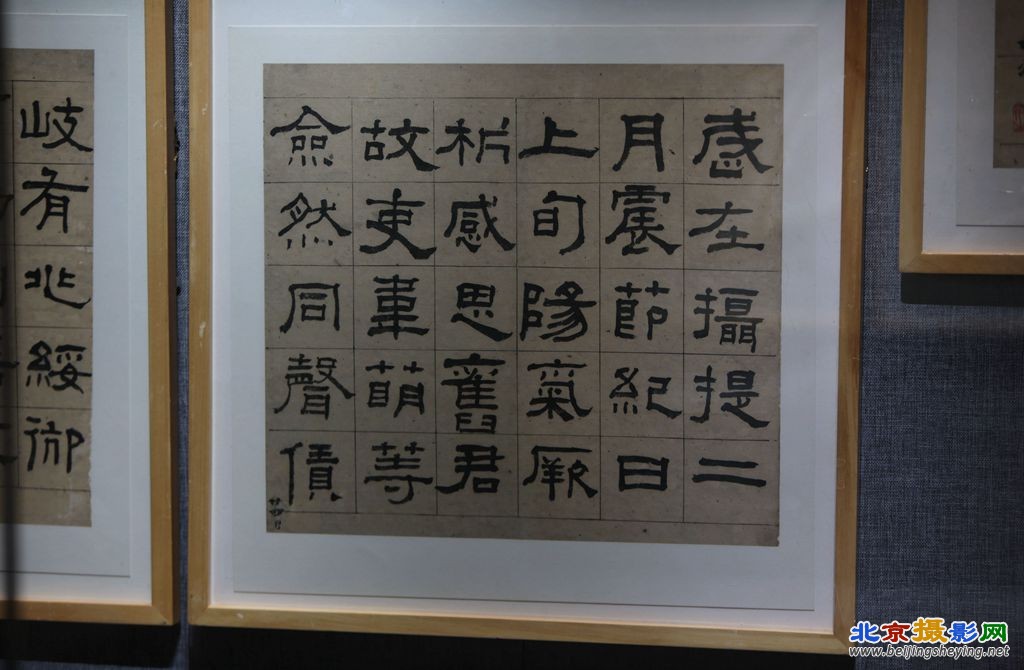 歲在攝提二
月震節紀日
上旬陽氣厥
析感思舊君
故吏韋萌等
僉然同聲債
岐有兆綏御
北京摄影网
www.beijingsheying.net